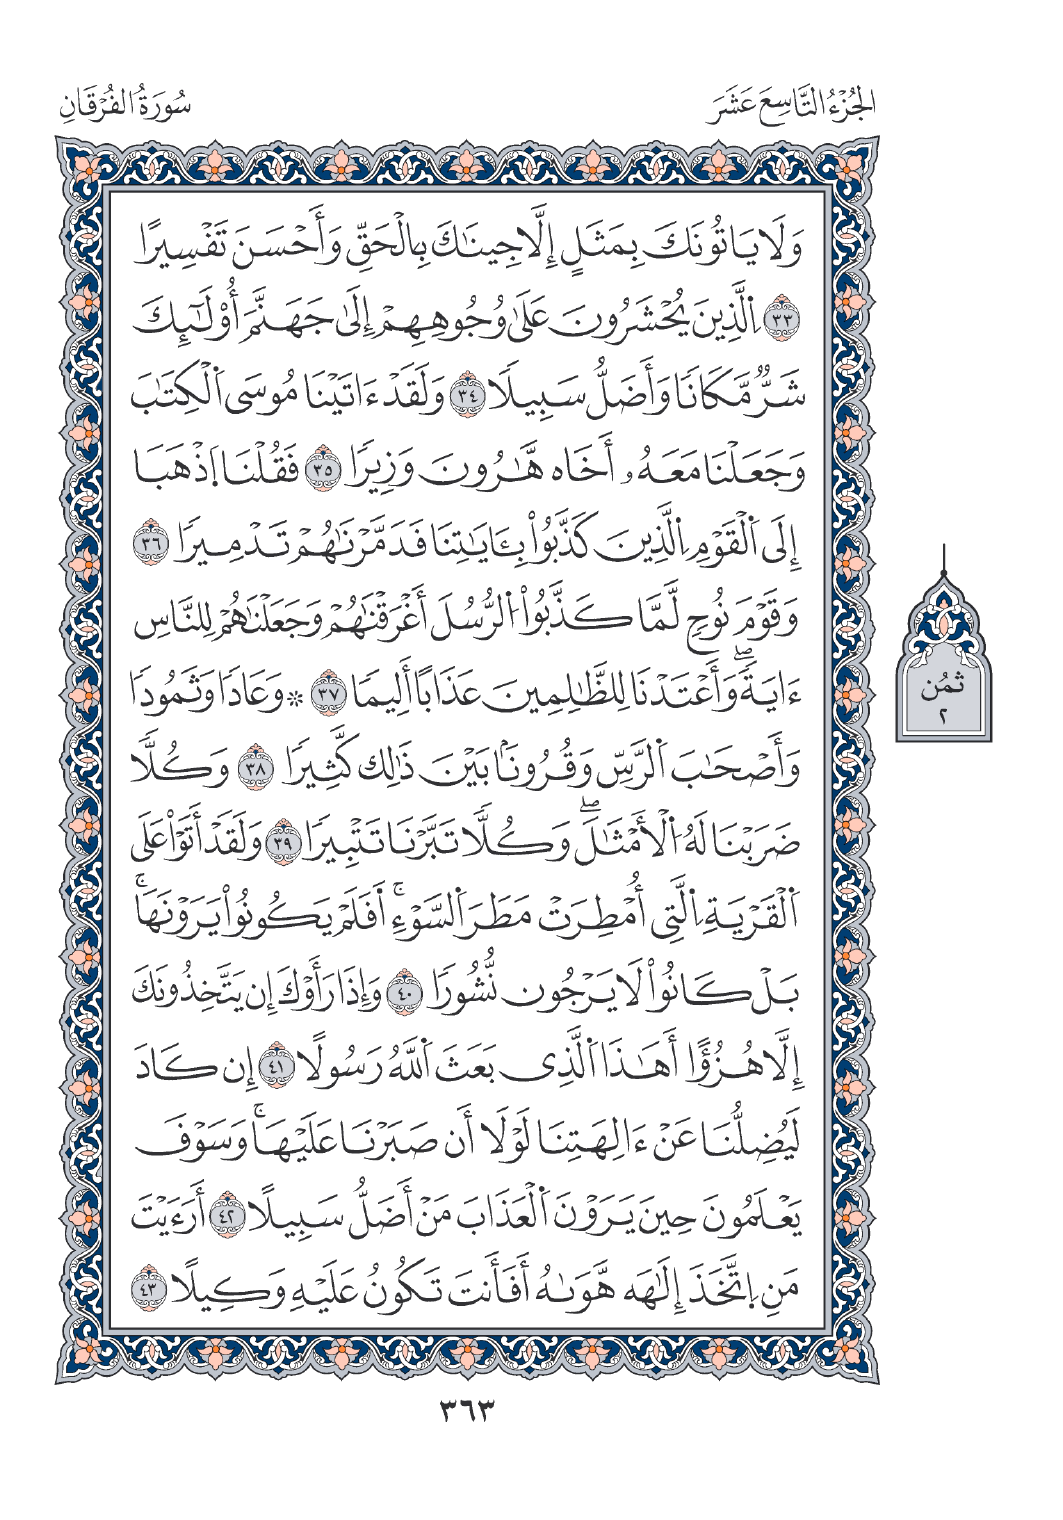 الجُزْءُ التَّاسِعَ عَشَرَ
سُورَةُ الفُرْقَانِ
وَلَا يَاتُونَكَ بِمَثَلٍ إِلَّا جِينَٰكَ بِالْحَقِّ وَأَحْسَنَ تَفْسِيرًا
٣٣ اِ۬لَّذِينَ يُحْشَرُونَ عَلَىٰ وُجُوهِهِمْ إِلَىٰ جَهَنَّمَ أُوْلَٰٓئِكَ
شَرٌّ مَّكَانًا وَأَضَلُّ سَبِيلًا ٣٤ وَلَقَدْ ءَاتَيْنَا مُوسَى اَ۬لْكِتَٰبَ
وَجَعَلْنَا مَعَهُۥ أَخَاه هَّٰرُونَ وَزِيرًا ٣٥ فَقُلْنَا اَ۪ذْهَبَا
إِلَى اَ۬لْقَوْمِ اِ۬لَّذِينَ كَذَّبُواْ بِـَٔايَٰتِنَا فَدَمَّرْنَٰهُمْ تَدْمِيرًا ٣٦
وَقَوْمَ نُوحٍ لَّمَّا كَذَّبُواْ اُ۬لرُّسْلَ أَغْرَقْنَٰهُمْ وَجَعَلْنَٰهُمْ لِلنَّاسِ
ءَايَةًۖ وَأَعْتَدْنَا لِلظَّٰلِمِينَ عَذَابًا أَلِيمًا ٣٧ ۞ وَعَادًا وَثَمُودًا
وَأَصْحَٰبَ اَ۬لرَّسِّ وَقُرُونَۢا بَيْنَ ذَٰلِك كَّثِيرًا ٣٨ وَكُلًّا
ضَرَبْنَا لَهُ اُ۬لْأَمْثَٰلَۖ وَكُلًّا تَبَّرْنَا تَتْبِيرًا ٣٩ وَلَقَدْ أَتَوْاْ عَلَى
اَ۬لْقَرْيَةِ اِ۬لَّتِى أُمْطِرَتْ مَطَرَ اَ۬لسَّوْءِۚ أَفَلَمْ يَكُونُواْ يَرَوْنَهَاۚ
بَلْ كَانُواْ لَا يَرْجُون نُّشُورًا ٤٠ وَإِذَا رَأَوْكَ إِن يَتَّخِذُونَكَ
إِلَّا هُزُؤًا أَهَٰذَا اَ۬لَّذِى بَعَثَ اَ۬للَّهُ رَسُولًا ٤١ إِن كَادَ
لَيُضِلُّنَا عَنْ ءَالِهَتِنَا لَوْلَا أَن صَبَرْنَا عَلَيْهَاۚ وَسَوْفَ
يَعْلَمُونَ حِينَ يَرَوْنَ اَ۬لْعَذَابَ مَنْ أَضَلُّ سَبِيلًا ٤٢ أَرَءَيْتَ
مَنِ اِ۪تَّخَذَ إِلَٰهَه هَّوَىٰهُ أَفَأَنتَ تَكُونُ عَلَيْهِ وَكِيلًا ٤٣
ثمُن
٢
٣٦٣